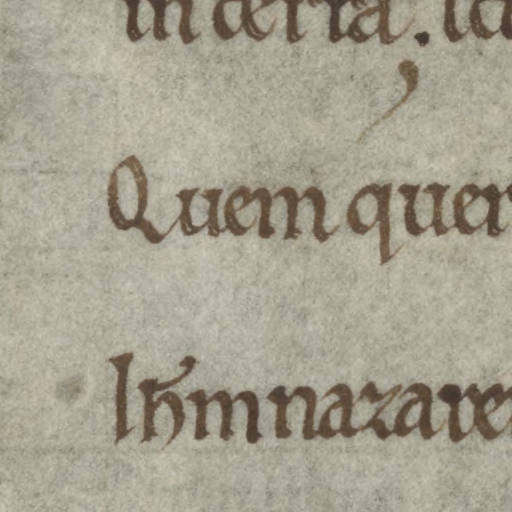 in terra.
Quem quer
Ihm nazare